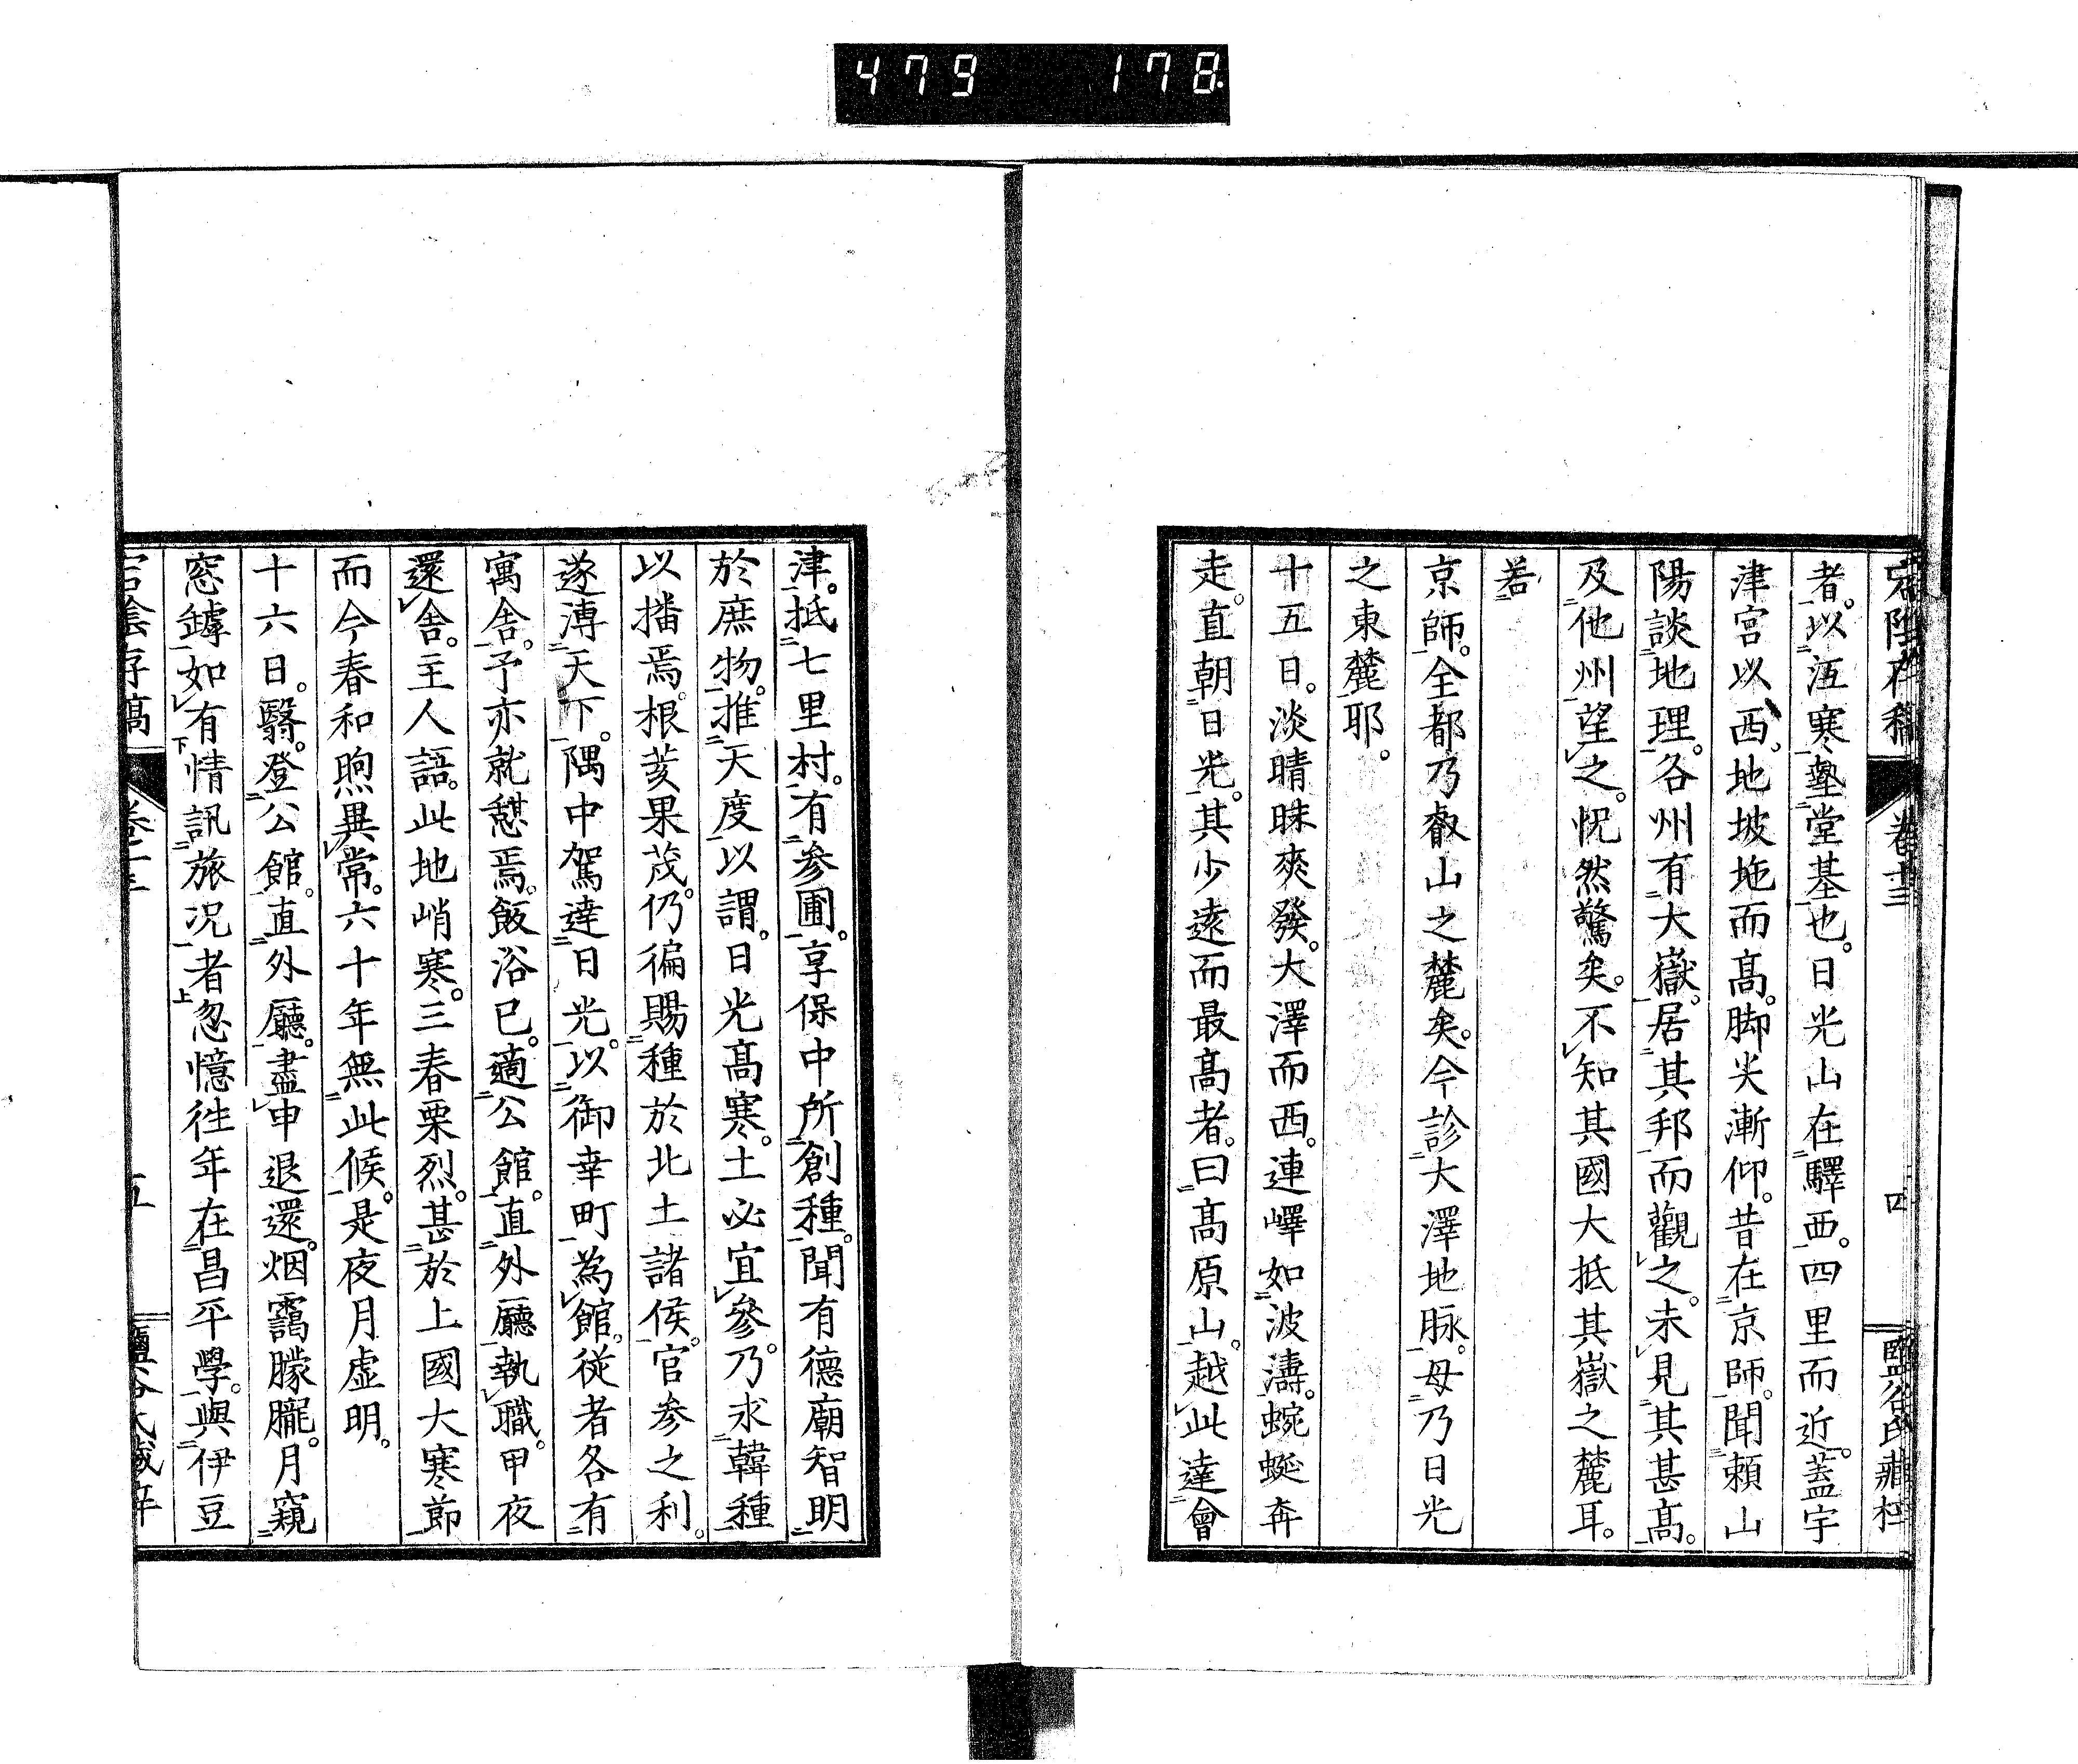 479 178
宕陰存稿 卷十三 四 鹽谷氏藏梓
者。以沍寒墊堂基也。日光山在驛西。四里而近。蓋宇
津宮以西、地坡陁而高。脚尖漸仰。昔在京師。聞賴山
陽談地理。各州有大嶽。居其邦而觀之。未見其甚高。
及他州望之。怳然驚矣。不知其國大抵其嶽之麓耳。
若
京師。全都乃叡山之麓矣。今診大澤地脉。毋乃日光
之東麓耶。
十五日。淡晴昧爽發。大澤而西。連嶧如波濤。蜿蜒奔
走。直朝日光。其少遠而最高者。曰高原山。越此達會
津。抵七里村。有參圃。享保中所創種。聞有德廟智明
於庶物。推天度以謂。日光高寒。土必宜參。乃求韓種
以播焉。根荄果茂。仍徧賜種於北土諸侯。官參之利。
遂溥天下。隅中駕達日光。以御幸町為館。從者各有
寓舍。予亦就憇焉。飯浴已。適公館。直外廳執職。甲夜
還舍。主人語。此地峭寒。三春栗烈。甚於上國大寒節
而今春和煦異常。六十年無此候。是夜月虛明。
十六日。翳。登公館。直外廳。盡申退還。烟靄朦朧。月窺
窓罅如有情訊旅况者忽憶往年在昌平學。與伊豆
宕陰存稿 卷十三 五 鹽谷氏藏梓